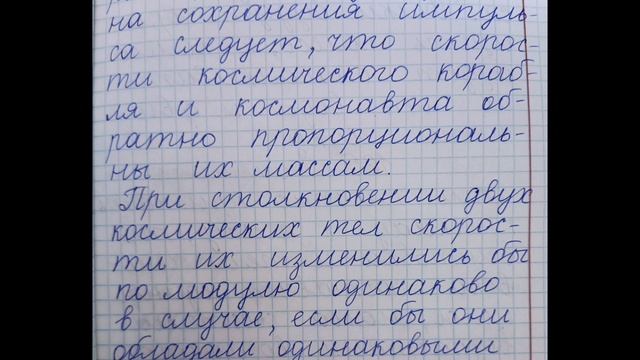 на сохранения импуль-
са следует, что скорос-
ти космического кораб-
ля и космонавта об-
ратно пропорциональ-
ны их массам.
При столкновении двух
космических тел скорос-
ти их изменились бы
по модулю одинаково
в случае, если бы они
обладали одинаковыми